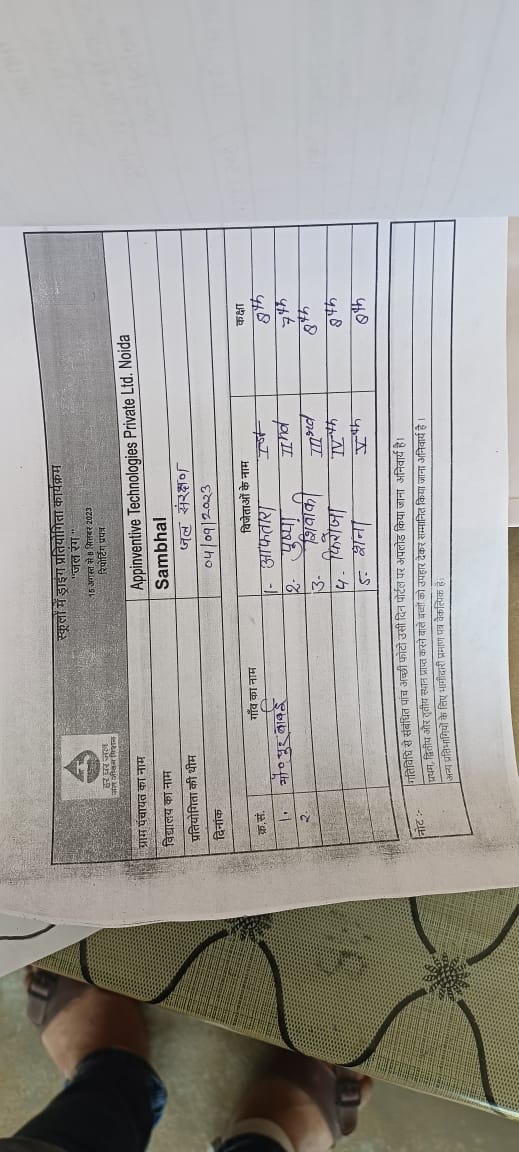 हर घर जल
जल जीवन मिशन
स्कूलों में ड्राइंग प्रतियोगिता कार्यक्रम
"जल रंग"
15 अगस्त से 8 सितम्बर 2023
रिपोर्टिंग प्रपत्र
ग्राम पंचायत का नाम Appinventive Technologies Private Ltd. Noida
विद्यालय का नाम Sambhal
प्रतियोगिता की थीम जल संरक्षण
दिनांक 04/09/2023
क्र.सं. गाँव का नाम विजेताओं के नाम कक्षा
1. 1- आफतारा Ist 8th
2- पुष्पा IInd 7th
2 3- शिवांकी IIIrd 8th
4- फिरोजा IVth 8th
5- शना Vth 8th
नोट :- गतिविधि से संबंधित पांच अच्छी फोटो उसी दिन पोर्टल पर अपलोड किया जाना अनिवार्य है।
प्रथम, द्वितीय और तृतीय स्थान प्राप्त करने वाले बच्चों को उपहार देकर सम्मानित किया जाना अनिवार्य है।
अन्य प्रतिभागियों के लिए भागीदारी प्रमाण पत्र वैकल्पिक है।